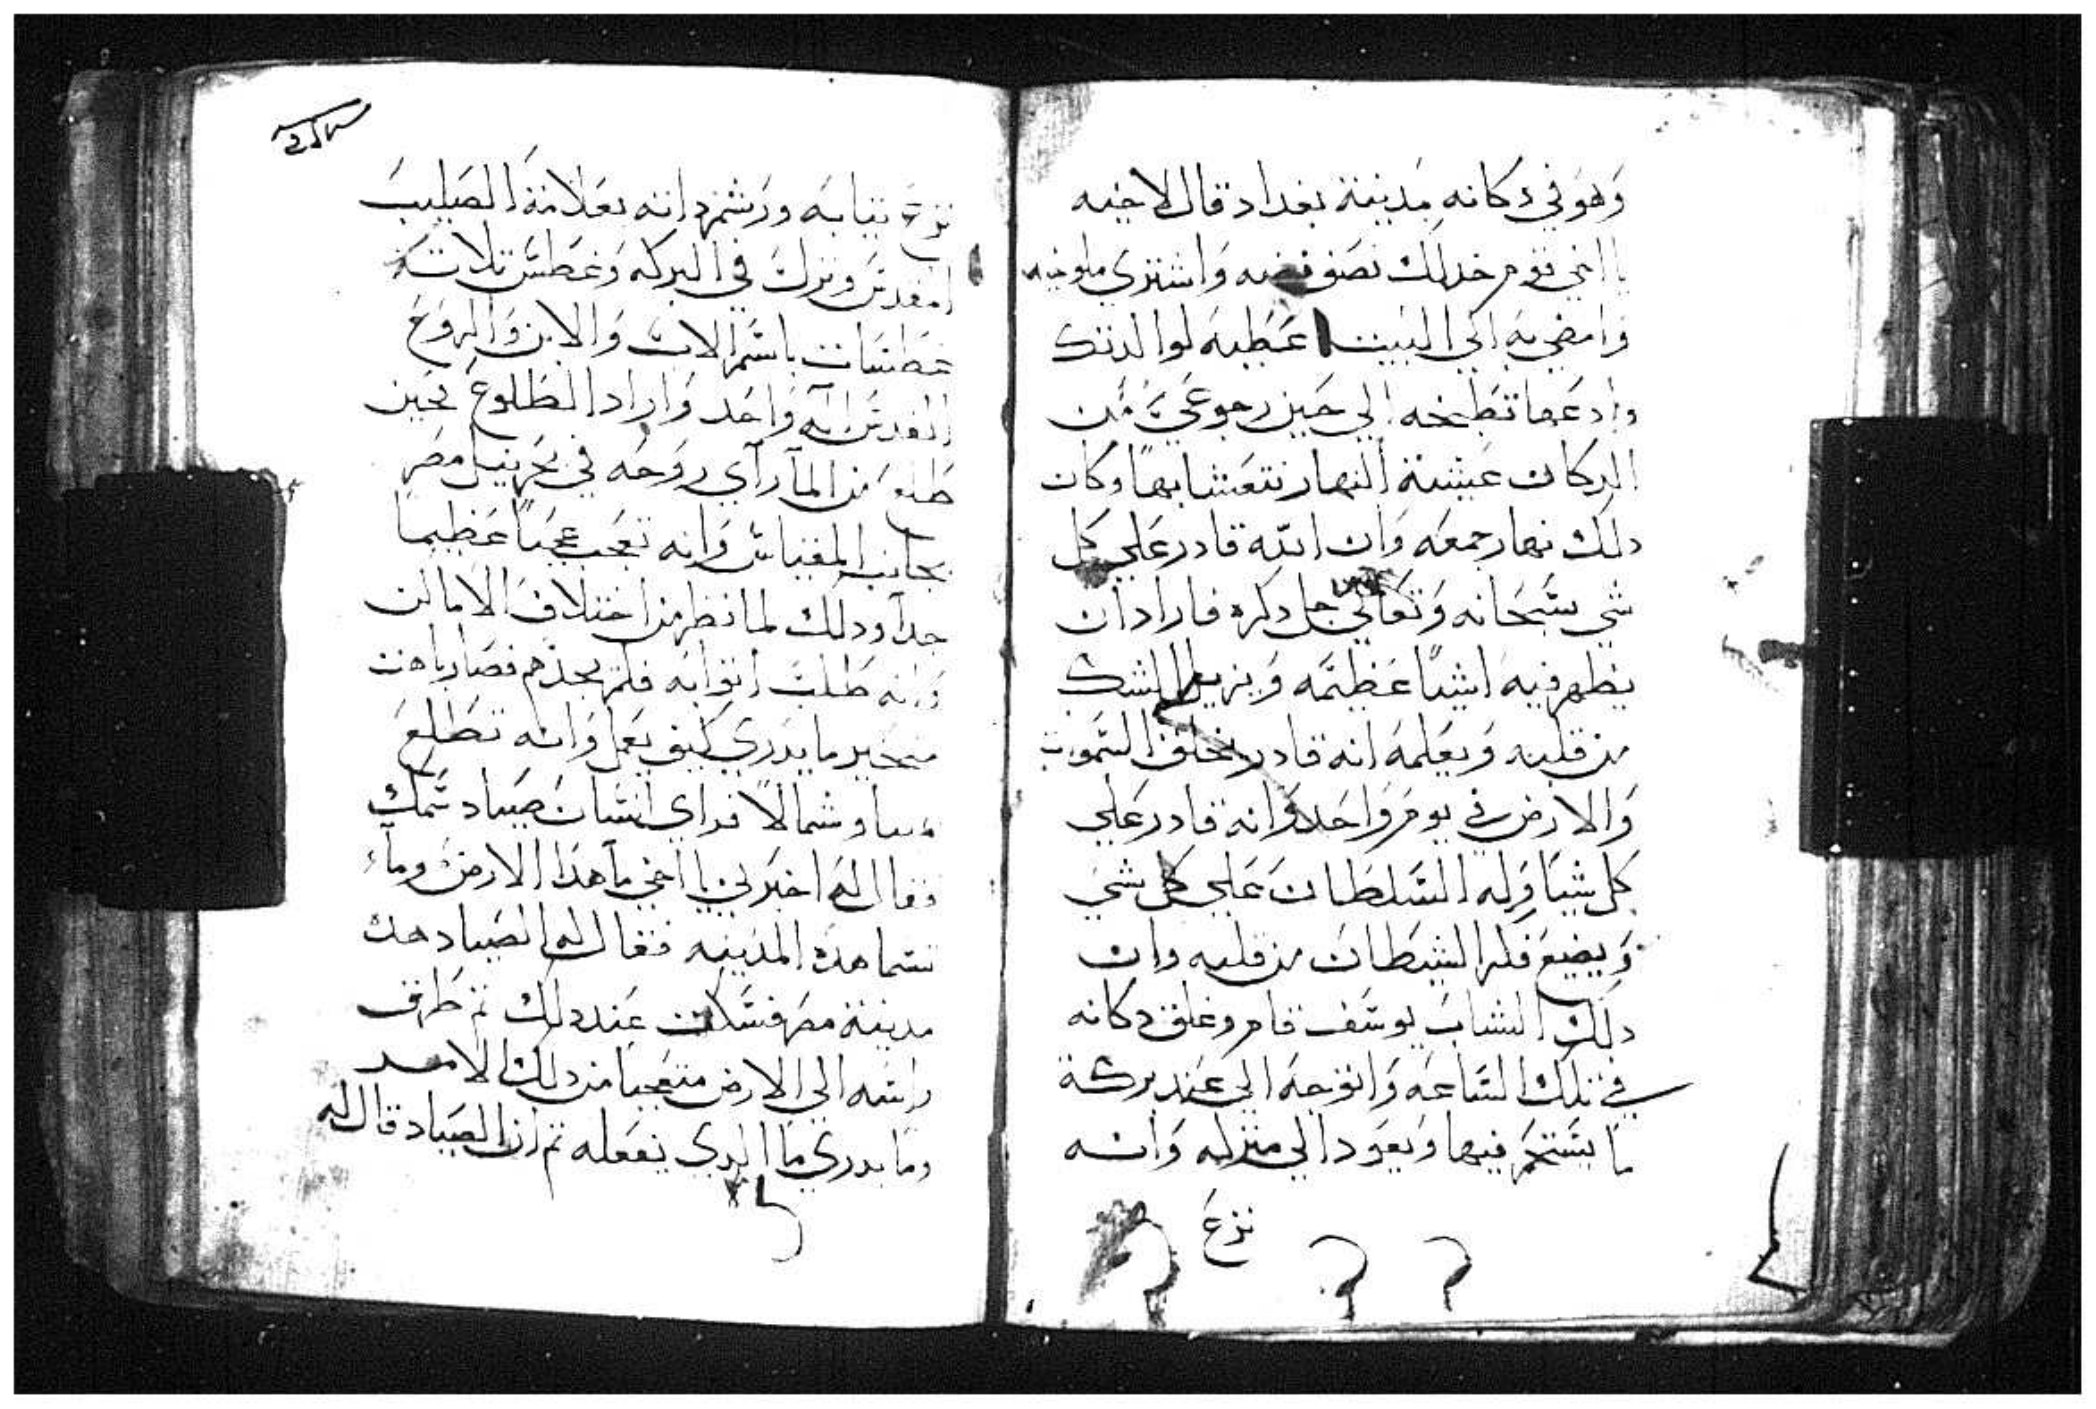 وهو في دكانه مدينة بغداد قال لاخيه
يا اخي قوم خد لك نصف فضه واشتري ملوخيه
وامضي به الي البيت اعطيه لوالدتك
وادعها تطبخه الي حين رجوعي من
الدكان عيشة النهار نتعشا بها وكان
دلك نهار جمعه وان الله قادر علي كل
شي سبحانه وتعالي جل دكره فاراد ان
يظهر فيه اشيا عظيمه ويزيل الشك
من قلبه ويعلمه انه قادر خلق السموات
والارض في يوم واحد وانه قادر علي
كل شيا وله السلطان علي كل شي
ويضيع فكر الشيطان من قلبه وان
دلك الشاب يوسف قام وغلق دكانه
في تلك الساعه واتوجه الي عند بركة
ما يستحم فيها ويعود الي منزله وانه
نزع
نزع تيابه ورشم داته بعلامة الصليب
المقدس ونزل في البركه وغطس تلات
غطسات باسم الاب والابن والروح
القدس اله واحد واراد الطلوع فحين
طلع من الما راي روحه في بحر نيل مصر
بجانب المقياس وانه تعجب عجبا عظيما
جدا ودلك لما نظر من اختلاف الاماكن
وانه طلب اتوابه فلم يجدهم فصار باهت
متحير ما يدري كيف يعمل وانه تطلع
يمينا وشمالا فراي انسان صياد سمك
فقال له اخبرني يا اخي ما هدا الارض وما
تسما هده المدينه فقال له الصياد هده
مدينة مصر فسكت عند دلك تم طرق
راسه الي الارض متعجبا من دلك الامر
وما يدري ما الدي يفعله تم ان الصياد قال له